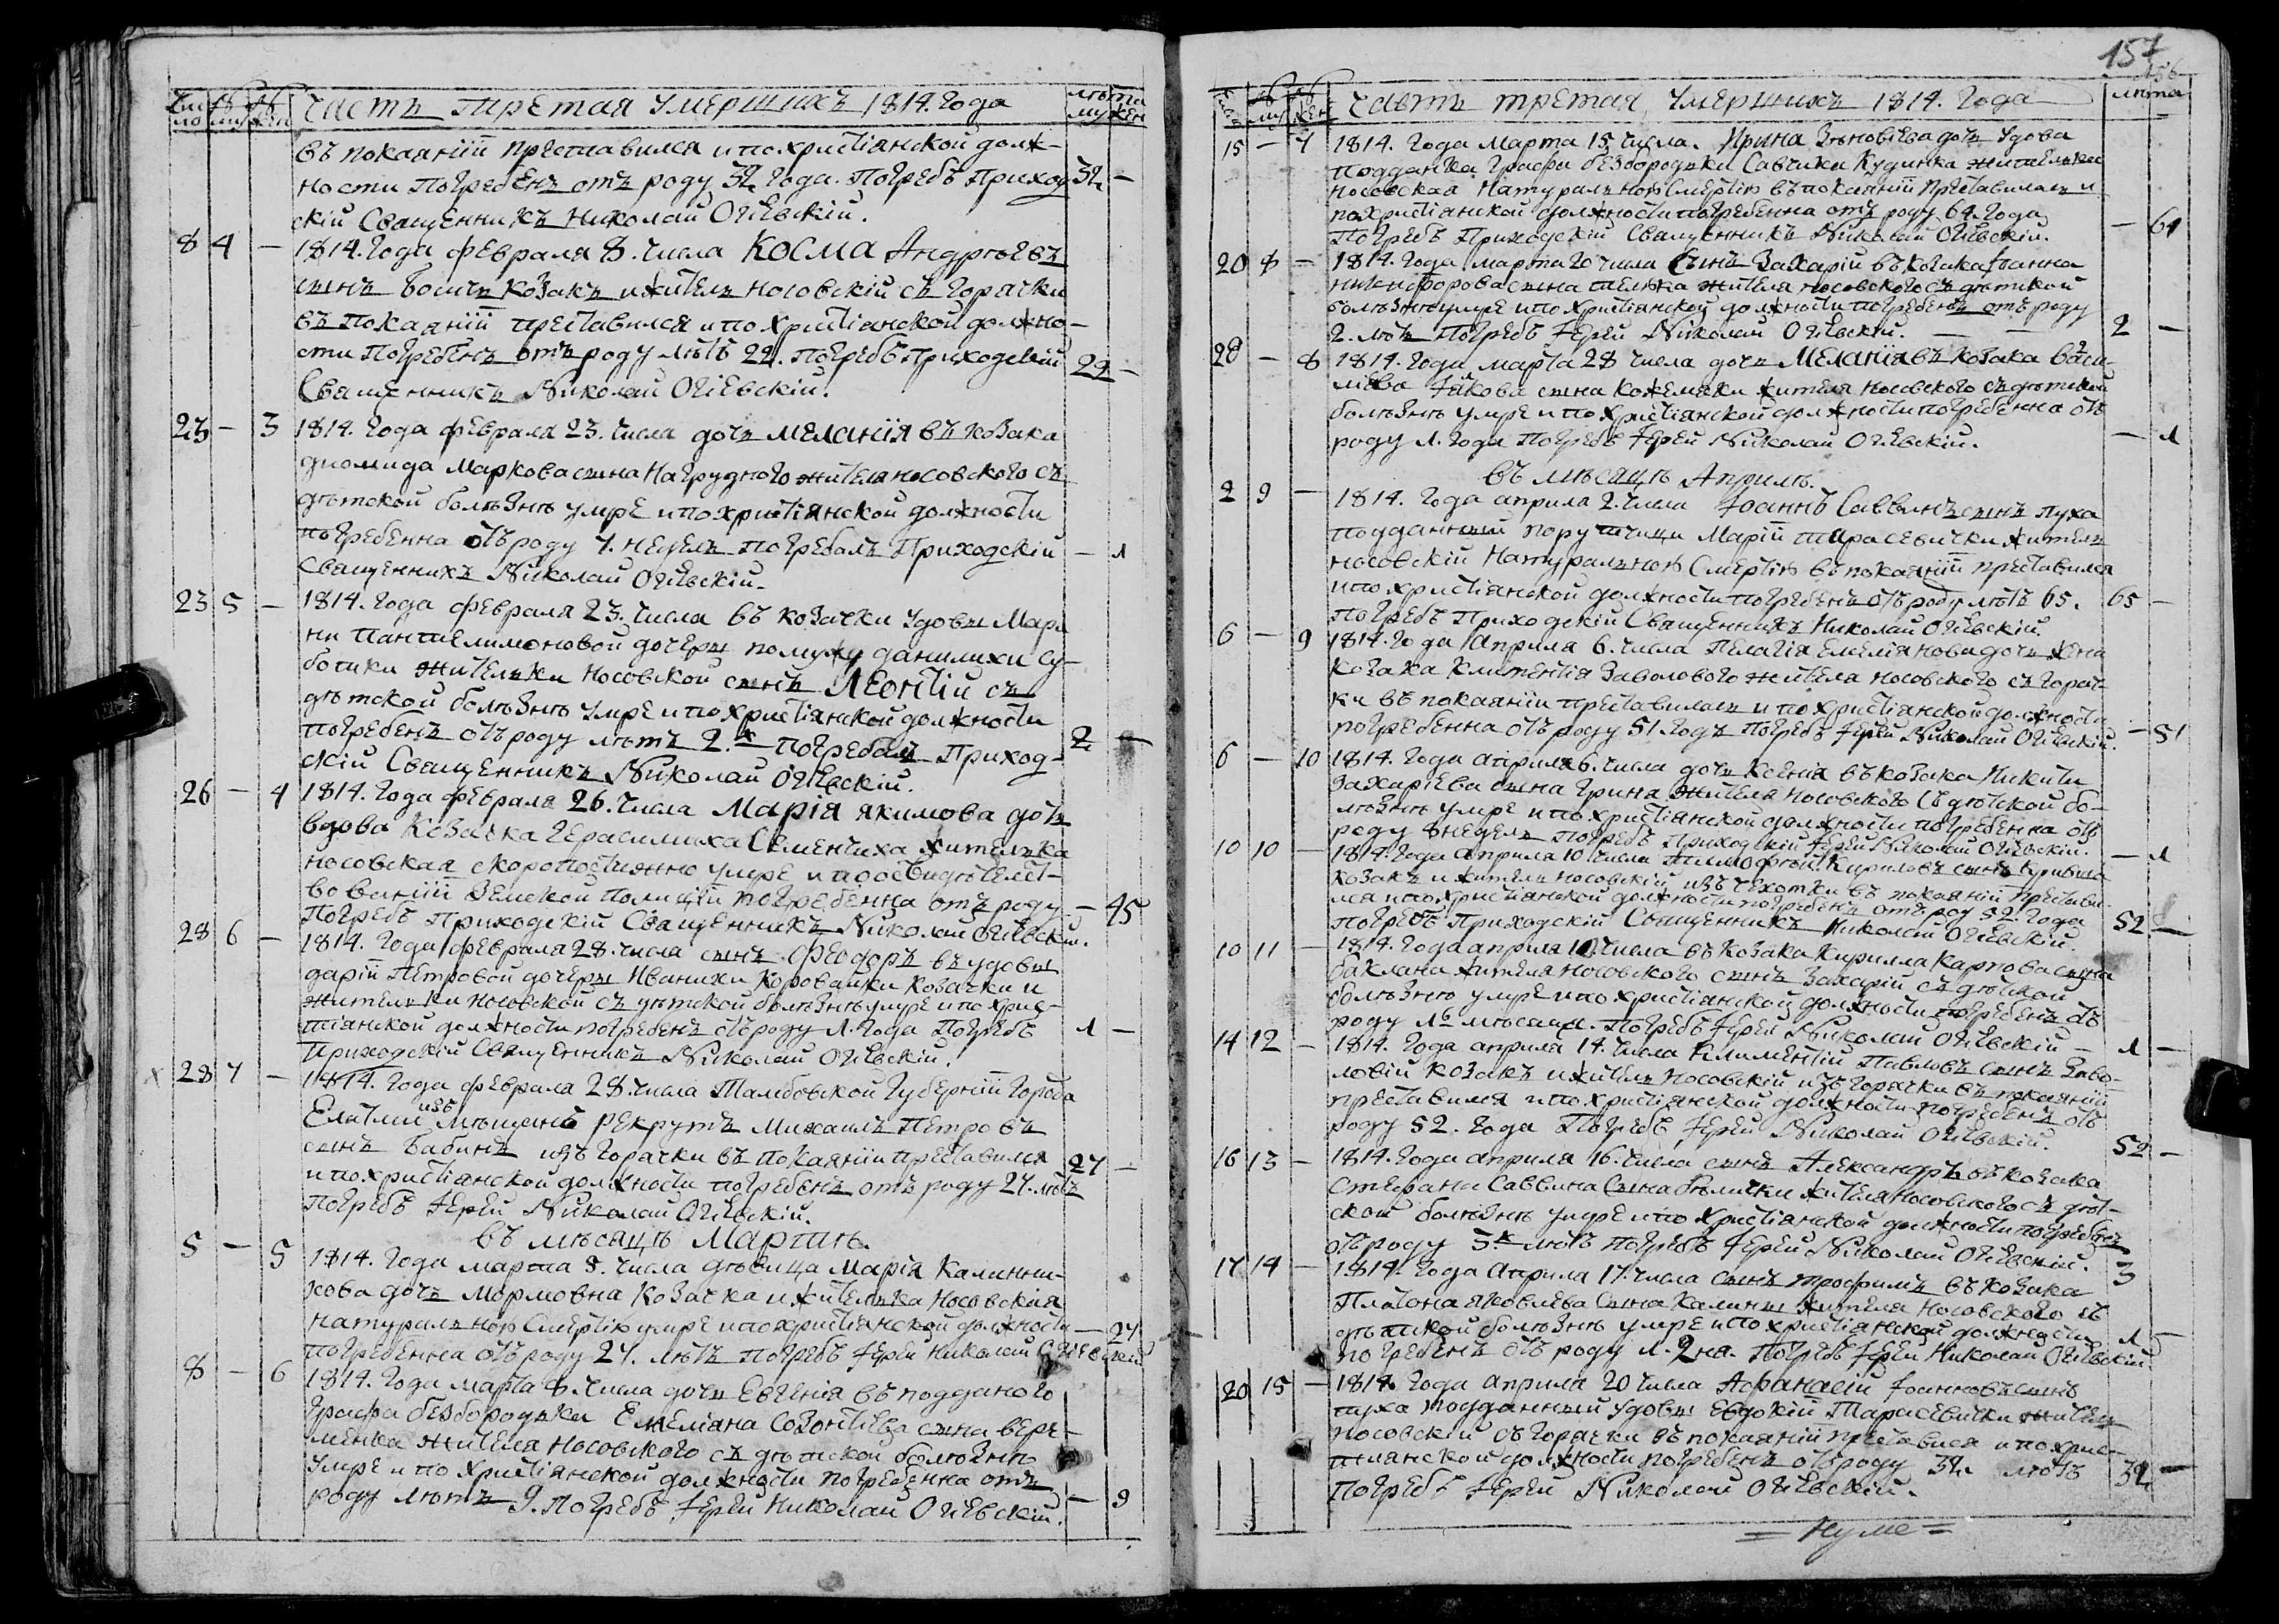 Часть третая умершихъ 1814. Года
въ покаяніи преставился и по христіянской долж-
ности погребенъ отъ роду 32 года. Погребъ Приход 32 —
скій Священникъ Николай Огіевскій.
8 4 — 1814. Года февраля 8. числа Косма Андрѣевъ
сынъ козакъ и житель носовскій съ горячки
въ покаяніи преставился и по христіянской должно-
сти погребенъ отъ роду лѣтъ 22. погребъ Приходскій 22 —
Священникъ Николай Огіевскій.
23 — 3 1814. Года февраля 23. числа дочь меланія въ козака
диомида Маркова сына Нагрудного жителя носовского съ
дѣтской болѣзнѣ умре и по христіянской должности
погребенна отъ роду 7. недель погребалъ Приходскій — 1
Священникъ Николай Огіевскій.
23 5 — 1814. Года февраля 23. числа въ козачки удовы Мари
ни Пантелимоновой дочеры по мужу данилихи Су-
ботики жительки носовской сынъ Леонтій съ
дѣтской болѣзнѣ умре и по христіянской должности
погребенъ отъ роду лѣтъ 2.х погребалъ Приход- 2 —
скій Священникъ Николай Огіевскій.
26 — 4 1814. Года февраля 26. числа Марія якимова дочь
вдова козачка Герасимиха Семенчиха жителька
носовская скоропостижно умре и по освидѣтелст-
вованіи земской полиціи погребенна отъ роду — 45
Погребъ Приходскій Священникъ Николай Огіевскій.
28 6 — 1814. Года февраля 28. числа сынъ Феодоръ въ удовы
даріи Петровой дочеры Иванихи Коровайки козачки и
жительки носовской съ дѣтской болѣзнѣ умре и по хрис-
тіянской должности погребенъ отъ роду 1. года погребъ 1 —
Приходскій Священникъ Николай Огіевскій.
х 28 7 — 1814. Года февраля 28 числа Тамбовской Губерніи Города
Елатми изъ мѣщанъ рекрутъ Михаилъ Петровъ
сынъ Бабинъ изъ горячки въ покаяніи преставился 27 —
и по христіянской должности погребенъ отъ роду 27. лѣтъ
погребъ Іерей Николай Огіевскій.
въ мѣсяцѣ Мартѣ.
5 — 5 1814. Года марта 5. числа дѣвица Марія Калинни-
кова дочь козачка и жителька носовская
натуральною смертію умре и по христіянской должности — 27
погребенна отъ роду 27. лѣтъ погребъ Іерей Николай Огіевскій
8 — 6 1814. Года марта 8. числа дочь Евгенія въ подданого
Графа безбородька Емеліяна Созонтіева сына вере-
менка жителя носовского съ дѣтской болѣзнѣ
умре и по христіянской должности погребенна отъ
роду лѣтъ 9. погребъ Іерей Николай Огіевскій. — 9
157
156
Часть третая умершихъ 1814. Года
15 — 7 1814. Года Марта 15 числа. Ирина Зѣновіева дочь удова
подданка Графа безбородьки Савчиха Кудинка жителька
носовская натуральной смертію въ покаяніи преставилась и
по христіянской должности погребенна отъ роду 64. года
погребъ Приходскій Священникъ Николай Огіевскій. — 64
20 8 — 1814. Года марта 20 числа сынъ Захарій въ козака Іоанна
никифорова сына жителя носовского съ дѣтской
болѣзнѣ умре и по христіянской должности погребенъ отъ роду
2. лѣтъ погребъ Іерей Николай Огіевскій. 2 —
28 — 8 1814. Года марта 28 числа дочь Меланія въ козака
Іякова сына кожемяки жителя носовского съ дѣтской
болѣзнѣ умре и по христіянской должности погребенна отъ
роду 1. года погребъ Іерей Николай Огіевскій. — 1
въ мѣсяцѣ Априлѣ.
2 9 — 1814. Года априля 2. числа Іоаннъ Саввинъ сынъ пуха
подданный поручици Маріи тарасевички житель
носовскій натуральною смертію въ покаяніи преставился
и по христіянской должности погребенъ отъ роду лѣтъ 65. 65 —
погребъ Приходскій Священникъ Николай Огіевскій.
6 — 9 1814. Года Априля 6. числа Пелагія емеліянова дочь жена
козака Климентія Заволового жителя носовского съ горяч-
ки въ покаяніи преставилась и по христіянской должности
погребенна отъ роду 51 годъ погребъ Іерей Николай Огіевскій. — 51
6 — 10 1814. Года априля 6. числа дочь Ксенія въ козака Никити
Захаріева сына Грина жителя носовского съ дѣтской бо-
лѣзнѣ умре и по христіянской должности погребенна отъ
роду недель погребъ Приходскій Іерей Николай Огіевскій. — 1
10 10 — 1814. Года априля 10 числа Тимофѣй Кириловъ сынъ
козакъ и житель носовскій изъ чехотки въ покаяніи престави-
лся и по христіянской должности погребенъ отъ род 52. года
погребъ Приходскій Священникъ Николай Огіевскій 52 —
10 11 — 1814. Года априля 10 числа въ козака Кирилла Карпова сына
баклана жителя носовского сынъ Захарій съ дѣтской
болѣзнѣ умре и по христіянской должности погребенъ отъ
роду мѣсяца. погребъ Іерей Николай Огіевскій — 1 —
14 12 — 1814. Года априля 14. числа Климентій Павловъ сынъ Заво-
ловій козакъ и житель носовскій изъ горячки въ покаяніи
преставился и по христіянской должности погребенъ отъ
роду 52. года Погребъ Іерей Николай Огіевскій. 52 —
16 13 — 1814. Года априля 16. числа сынъ Александръ въ козака
Стефана Саввина сына жителя носовского съ дѣт-
ской болѣзнѣ умре и по христіянской должности погребенъ
отъ роду 3.х лѣтъ погребъ Іерей Николай Огіевскій. 3
17 14 — 1814. Года Априля 17. числа сынъ трофимъ въ козака
Платона яковлева сына калины жителя носовского съ
дѣтской болѣзнѣ умре и по христіянской должности 1 —
погребенъ отъ роду 1. дня. Погребъ Іерей Николай Огіевскій
20 15 — 1814 Года априля 20 числа Афанасій Іоанновъ сынъ
пуха подданный удовы евдокіи Тарасевички житель
носовскій съ горячки въ покаяніи преставися и по хрис-
тіянской должности погребенъ отъ роду 32 лѣтъ 32 —
Погребъ Іерей Николай Огіевскій.